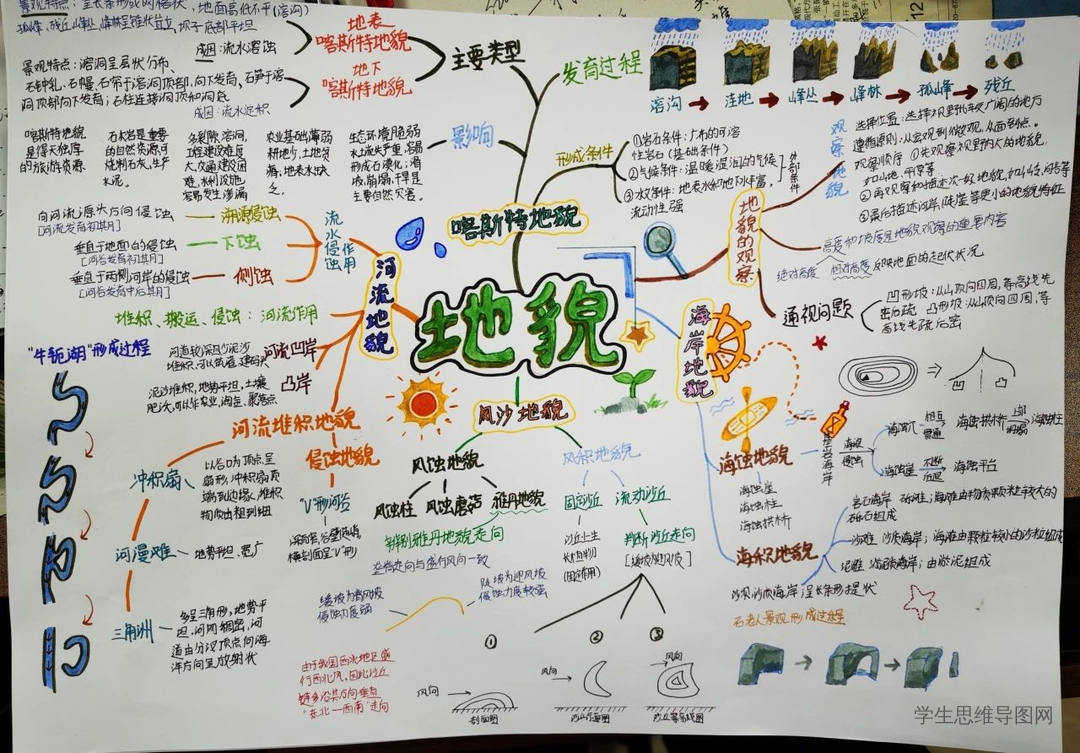 景观特点：呈长条形或网格状，地面高低不平（溶沟）
孤峰、残丘
成因：流水溶蚀
地表
喀斯特地貌
景观特点：溶洞呈层状分布
石钟乳、石幔、石帘于溶洞顶部，向下发育，石笋于溶
洞顶部向下发育；石柱连接洞顶和洞底
成因：流水沉积
地下
喀斯特地貌
主要类型
发育过程
溶沟
洼地
峰丛
峰林
孤峰
残丘
喀斯特地貌
是得天独厚
的旅游资源
石灰岩是重要
的自然资源，可
烧制石灰，生产
水泥。
多裂隙、溶洞，
工程建设难度
大，交通建设困
难，水利设施
容易发生渗漏
农业基础薄弱
耕地少，土地贫
瘠，地表水缺
乏。
生态环境脆弱
水土流失严重，容易
形成石漠化，滑
坡，崩塌，干旱是
主要自然灾害。
影响
形成条件
①岩石条件：广布的可溶
性岩石（基础条件）
②气候条件：温暖湿润的气候
③水文条件：地表水和地下水丰富，
流动性强
外部条件
喀斯特地貌
观察地貌
选择位置：选择视野比较广阔的地方
遵循原则：从宏观到微观，从面到点。
观察顺序：①先观察视野内大的地貌，
如山地、平原等
②再观察和描述次一级地貌，如山岭、河谷等
③最后描述河岸、陡崖等更小的地貌特征
地貌的观察
高度和坡度是地貌观察的重要内容
绝对高度 相对高度 反映地面的起伏状况
通视问题
凹形坡：从山顶向四周，等高线先
密后疏 凸形坡：从山顶向四周，等
高线先疏后密
向河流源头方向侵蚀
[河流发育初期]
溯源侵蚀
垂直于地面的侵蚀
[河谷发育初期]
下蚀
垂直于两侧河岸的侵蚀
[河谷发育中后期]
侧蚀
流水侵蚀作用
河流地貌
堆积、搬运、侵蚀：河流作用
"牛轭湖"形成过程
河流凹岸
泥沙堆积，地势平坦，土壤
凸岸
地貌
河流堆积地貌
冲积扇
以谷口为顶点呈
扇形，冲积扇顶
端到边缘，堆积
物质由粗到细
河漫滩
地势平坦、宽广
三角洲
多呈三角形，地势平
坦，河网稠密，河
道由分汊顶点向海
洋方向呈放射状
侵蚀地貌
"V"形河谷
横剖面呈"V"形
风沙地貌
风蚀地貌
风蚀柱
风蚀蘑菇
雅丹地貌
判别雅丹地貌走向
垄槽走向与盛行风向一致
风积地貌
固定沙丘
沙丘上生
长植物
（固定作用）
流动沙丘
判断沙丘走向
[缓坡迎风坡]
缓坡为背风坡
侵蚀力度弱
陡坡为迎风坡
侵蚀力度较强
①
②
③
由于我国西北地区盛
行西北风，因此沙丘
链多沿其方向垂直
"东北—西南"走向
风向
剖面图
风向
风向
沙丘等高线图
海岸地貌
海蚀地貌
海蚀崖
海蚀柱
海蚀拱桥
基岩海岸
海浪
侵蚀
海蚀穴
相互
贯通
海蚀拱桥
上部
坍塌
海蚀柱
海蚀崖
不断
后退
海蚀平台
海积地貌
岩石海岸 砾滩：海滩由物质颗粒较大的
砾石组成
沙滩 沙质海岸；海滩由颗粒较小的沙粒组成
泥滩 淤泥质海岸；由淤泥组成
沙坝 沙质海岸 呈长条形提状
石老人景观形成过程
学生思维导图网